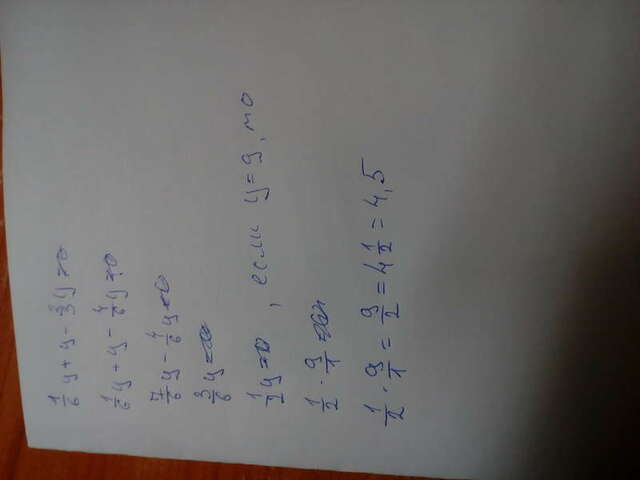 1/6 y + y - 2/3 y = 0
1/6 y + y - 4/6 y = 0
7/6 y - 4/6 y = 0
3/6 y =
1/2 y = , если y = 9, то
1/2 · 9/1
1/2 · 9/1 = 9/2 = 4 1/2 = 4,5